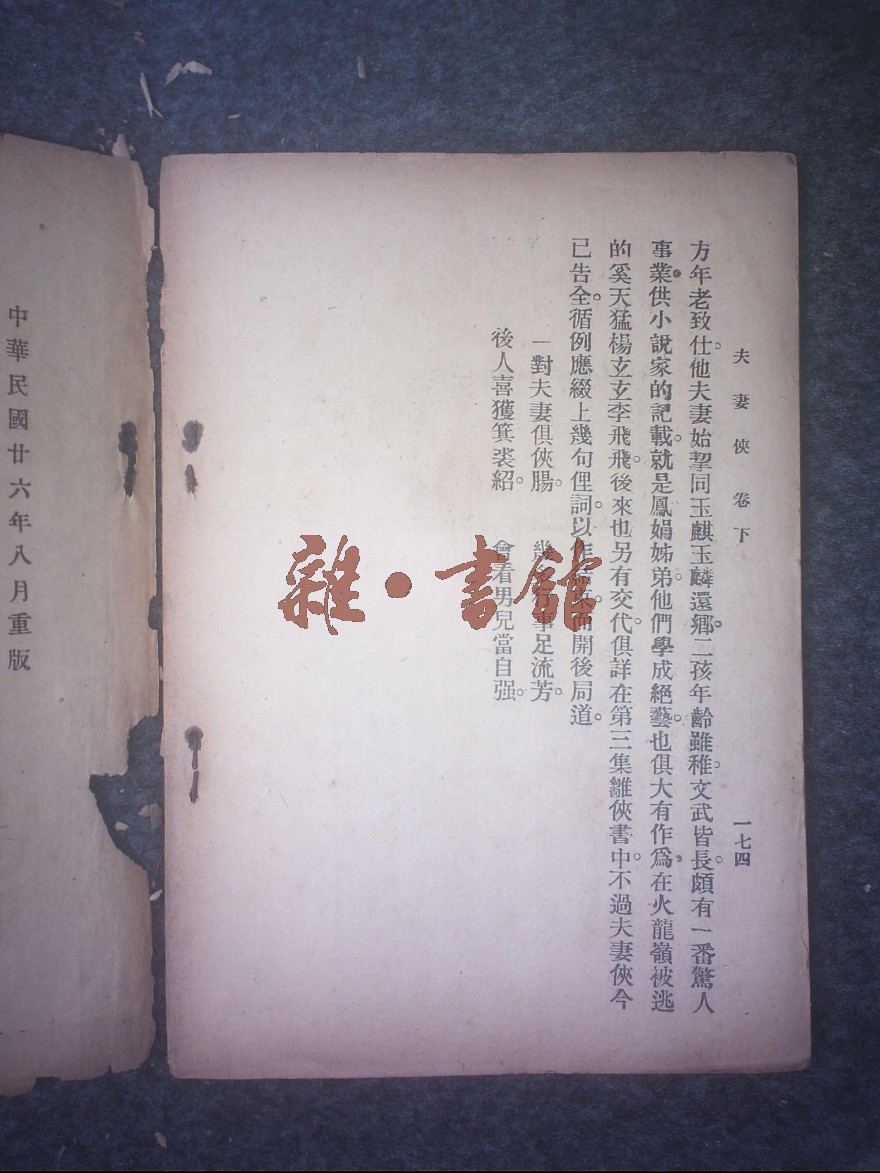 夫妻俠 卷下 一七四
方年老致仕。他夫妻始挈同玉麒玉麟還鄉。二孩年齡雖稚。文武皆長。頗有一番驚人
事業。供小說家的記載。就是鳳娟姊弟。他們學成絕藝。也俱大有作爲。在火龍嶺被逃
的奚天猛楊玄玄李飛飛。後來也另有交代。俱詳在第三集雛俠書中。不過夫妻俠今
已告全。循例應綴上幾句俚詞。以作結束。而開後局道。
一對夫妻俱俠腸。 事足流芳。
後人喜獲箕裘紹。 會看男兒當自强。
中華民國廿六年八月重版
雜·書館